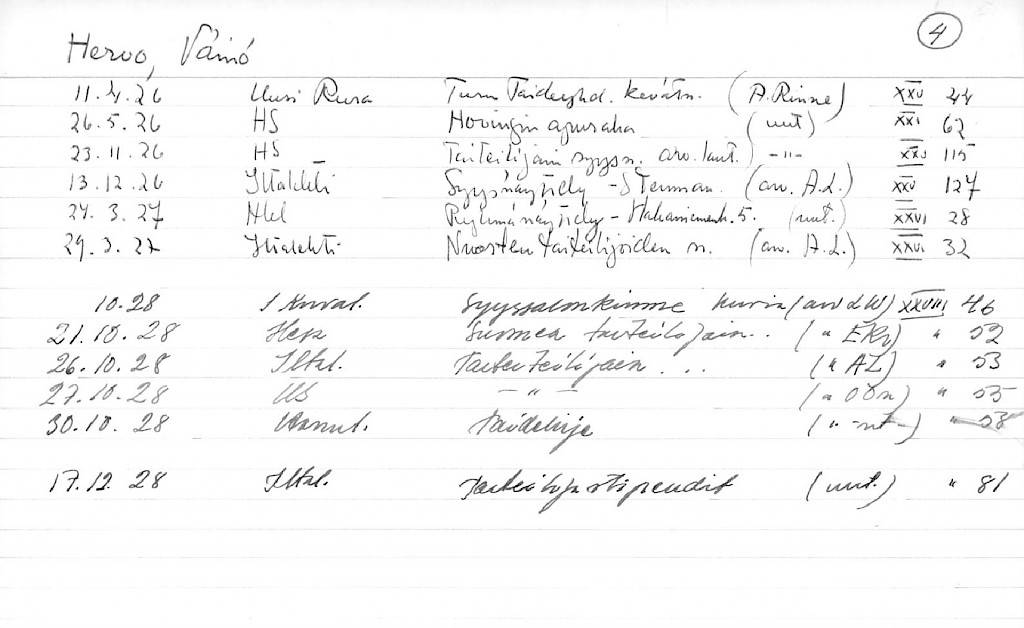 4
Hervo, Väinö
11.4.26 Uusi Aura Turun Taideyhd. kevätn. (A. Rinne) XXV 44
26.5.26 HS Hovingin apuraha (uut) XXI 62
23.11.26 HS Taiteilijain syysn. arv. laut. ) -"- XXV 115
13.12.26 Iltalehti Syysnäyttely - Stenman. (arv. A.L.) XXV 127
24.3.27 Hbl Ryhmänäyttely - 5. (uut.) XXVI 28
29.3.27 Iltalehti Nuorten taiteilijoiden n. (arv. A.L.) XXVI 32
10.28 S Kuval. Syyssalonkimme kuvia (arv LW) XXVIII 46
21.10.28 Suomen taiteilijain.. (" EKr) " 52
26.10.28 Iltal. Taiteilijain ... (" AL) " 53
27.10.28 US -"- ( " 55
30.10.28 (" -nt-) " 58
17.12.28 Iltal. Taiteilijastipendit (uut.) " 81